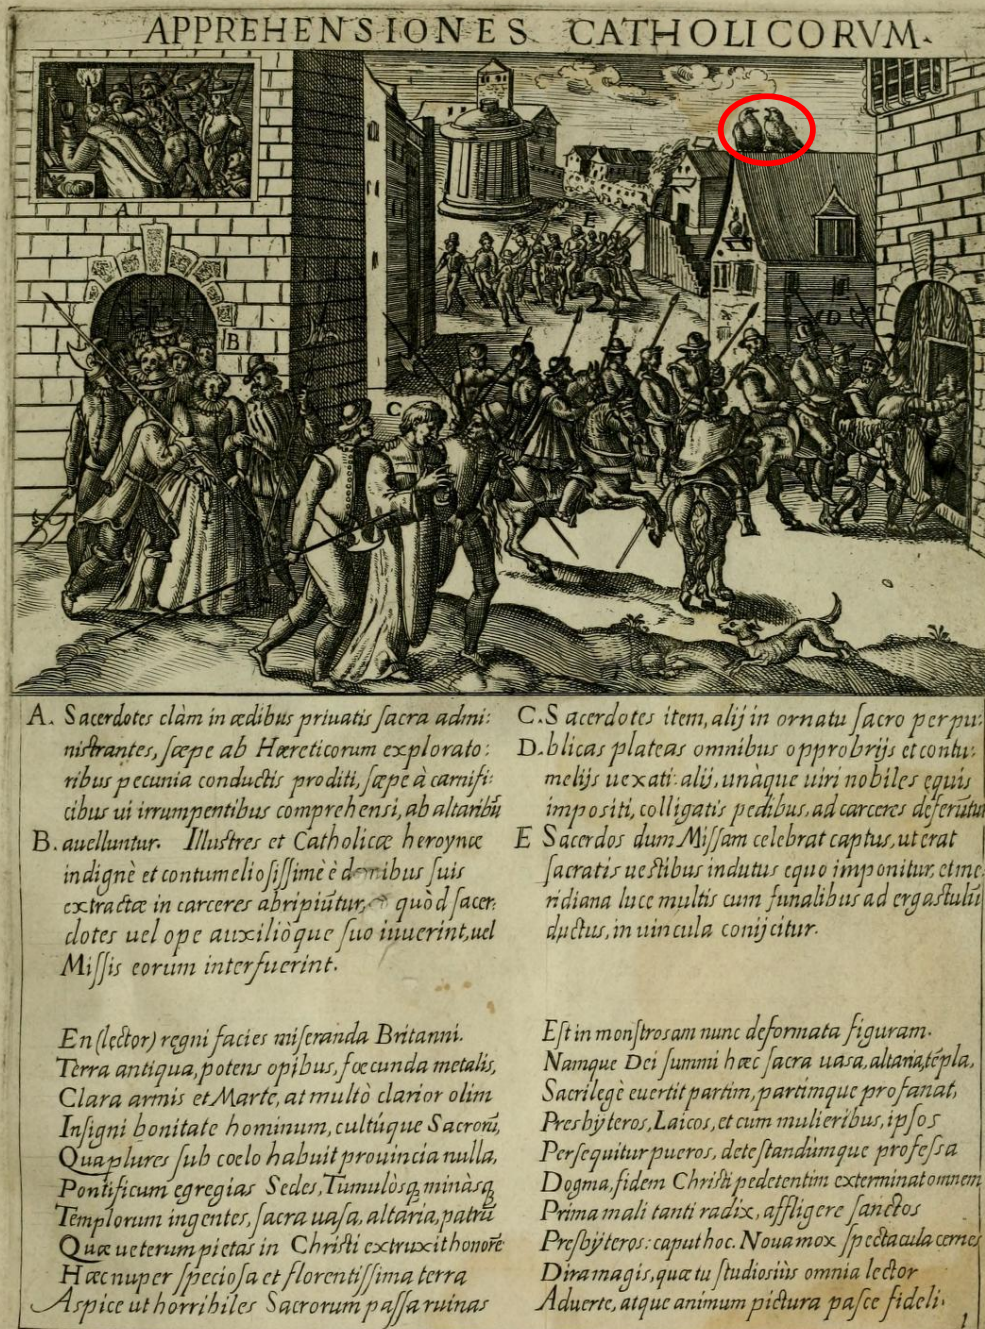 APPREHENSIONES CATHOLICORVM.
A
B
C
D
E
A. Sacerdotes clàm in ædibus priuatis sacra admi:
nistrantes, sæpe ab Hæreticorum explorato:
ribus pecunia conductis proditi, sæpe à carnifi:
cibus ui irrumpentibus comprehensi, ab altaribũ
B. auelluntur. Illustres et Catholicæ heroynæ
indignè et contumeliosissimè è domibus suis
extractæ in carceres abripiũtur, quòd sacer:
dotes uel ope auxilióque suo iuuerint, uel
Missis eorum interfuerint.
C. Sacerdotes item, alij in ornatu sacro per pu:
D. blicas plateas omnibus opprobrijs et contu:
melijs uexati: alij, unàque uiri nobiles equis
impositi, colligatis pedibus, ad carceres deferũtur
E Sacerdos dum Missam celebrat captus, ut erat
sacratis uestibus indutus equo imponitur, et me:
ridiana luce multis cum funalibus ad ergastulũ
ductus, in uincula conijcitur.
En (lector) regni facies miseranda Britanni.
Terra antiqua, potens opibus, fœcunda metalis,
Clara armis et Marte, at multò clarior olim
Insigni bonitate hominum, cultúque Sacrorũ,
Qua plures sub coelo habuit prouincia nulla,
Pontificum egregias Sedes, Tumulosq; minàsq;
Templorum ingentes, sacra uasa, altaria, patrũ
Quæ ueterum pietas in Christi extruxit honorẽ
Hæc nuper speciosa et florentissima terra
Aspice ut horribiles Sacrorum passa ruinas
Est in monstrosam nunc deformata figuram.
Namque Dei summi hæc sacra uasa, altaria, tẽpla,
Sacrilegè euertit partim, partimque profanat,
Presbÿteros, Laicos, et cum mulieribus, ipsos
Persequitur pueros, detestandùmque professa
Dogma, fidem Christi pedetentim exterminat omnem
Prima mali tanti radix, affligere sanctos
Presbÿteros: caput hoc. Noua mox spectacula cernes
Dira magis, quæ tu studiosiùs omnia lector
Aduerte, atque animum pictura pasce fideli.
1